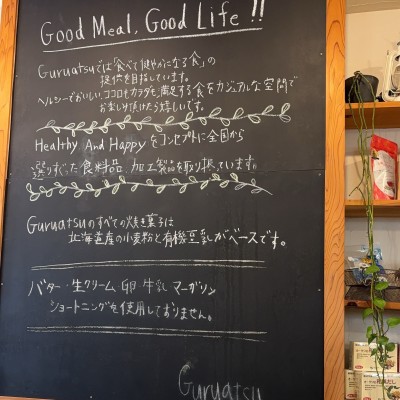 Good Meal, Good Life !!
Guruatsuでは「食べて健やかになる食」の
提供を目指しています。
ヘルシーでおいしい、ココロもカラダも満足する食をカジュアルな空間で
お楽しみ頂けたら嬉しいです。
Healthy And Happyをコンセプトに全国から
選りすぐった食料品、加工製品を取り扱ています。
Guruatsuのすべての焼き菓子は
北海道産の小麦粉と有機豆乳がベースです。
バター・生クリーム・卵・牛乳・マーガリン
ショートニングを使用しておりません。
Guruatsu